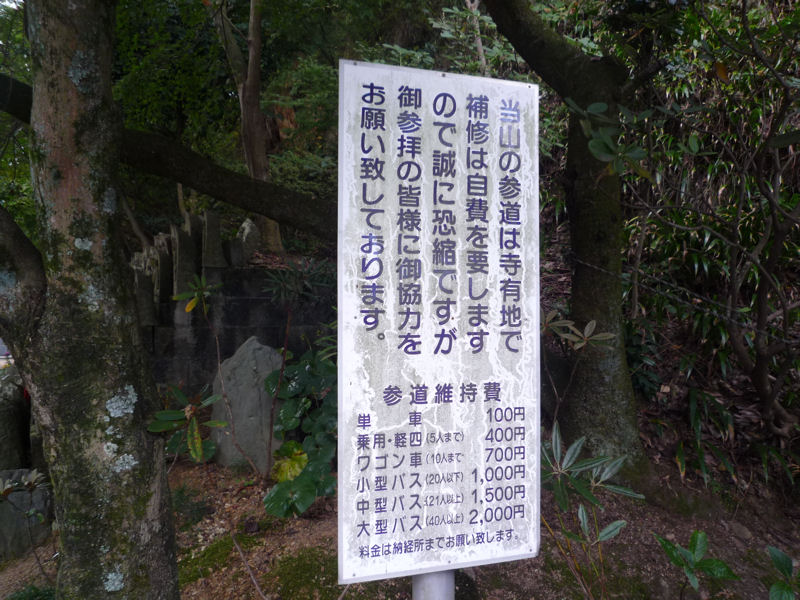 当山の参道は寺有地で
補修は自費を要します
ので誠に恐縮ですが
御参拝の皆様に御協力を
お願い致しております。
参道維持費
単車 100円
乗用・軽四(5人まで) 400円
ワゴン車(10人まで) 700円
小型バス(20人以下) 1,000円
中型バス(21人以上) 1,500円
大型バス(40人以上) 2,000円
料金は納経所までお願い致します。